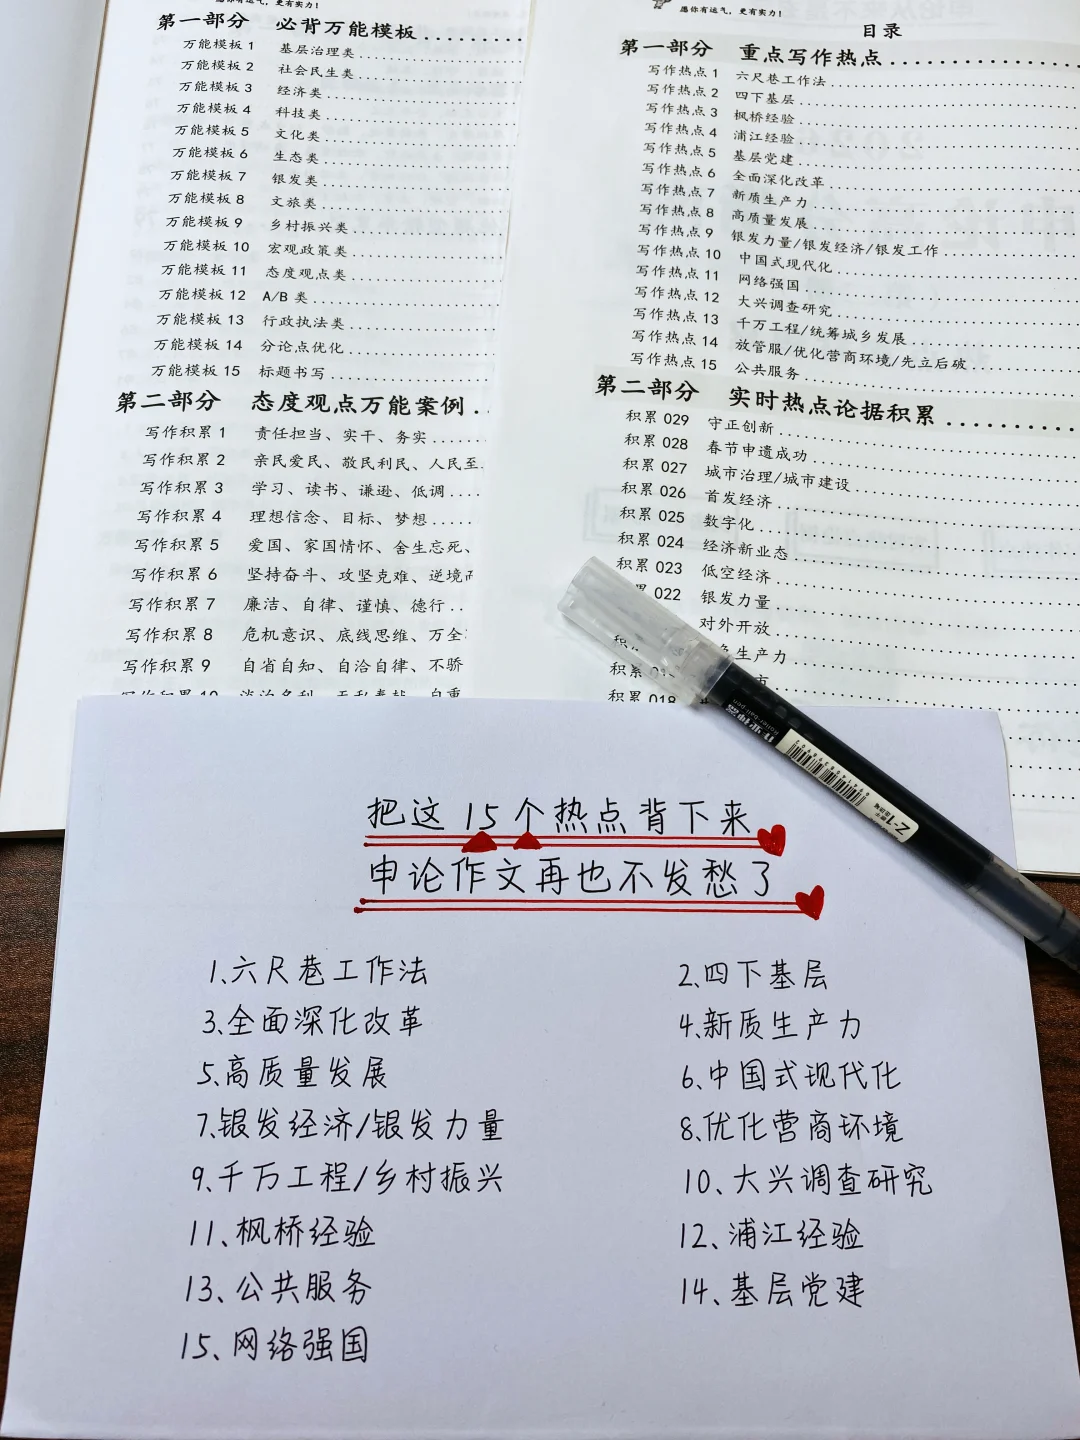 愿你有运气，更有实力！
第一部分 必背万能模板
万能模板 1 基层治理类
万能模板 2 社会民生类
万能模板 3 经济类
万能模板 4 科技类
万能模板 5 文化类
万能模板 6 生态类
万能模板 7 银发类
万能模板 8 文旅类
万能模板 9 乡村振兴类
万能模板 10 宏观政策类
万能模板 11 态度观点类
万能模板 12 A/B 类
万能模板 13 行政执法类
万能模板 14 分论点优化
万能模板 15 标题书写
第二部分 态度观点万能案例
写作积累 1 责任担当、实干、务实
写作积累 2 亲民爱民、敬民利民、人民至
写作积累 3 学习、读书、谦逊、低调
写作积累 4 理想信念、目标、梦想
写作积累 5 爱国、家国情怀、舍生忘死、
写作积累 6 坚持奋斗、攻坚克难、逆境
写作积累 7 廉洁、自律、谨慎、德行
写作积累 8 危机意识、底线思维、万全
写作积累 9 自省自知、自治自律、不骄
写作积累 10
愿你有运气，更有实力！
目录
第一部分 重点写作热点
写作热点 1 六尺巷工作法
写作热点 2 四下基层
写作热点 3 枫桥经验
写作热点 4 浦江经验
写作热点 5 基层党建
写作热点 6 全面深化改革
写作热点 7 新质生产力
写作热点 8 高质量发展
写作热点 9 银发力量/银发经济/银发工作
写作热点 10 中国式现代化
写作热点 11 网络强国
写作热点 12 大兴调查研究
写作热点 13 千万工程/统筹城乡发展
写作热点 14 放管服/优化营商环境/先立后破
写作热点 15 公共服务
第二部分 实时热点论据积累
积累 029 守正创新
积累 028 春节申遗成功
积累 027 城市治理/城市建设
积累 026 首发经济
积累 025 数字化
积累 024 经济新业态
积累 023 低空经济
022 银发力量
对外开放
生产力
积累 市
积累 018
Roller-ball pen
Z-1
把这15个热点背下来
申论作文再也不发愁了
1、六尺巷工作法
2、四下基层
3、全面深化改革
4、新质生产力
5、高质量发展
6、中国式现代化
7、银发经济/银发力量
8、优化营商环境
9、千万工程/乡村振兴
10、大兴调查研究
11、枫桥经验
12、浦江经验
13、公共服务
14、基层党建
15、网络强国